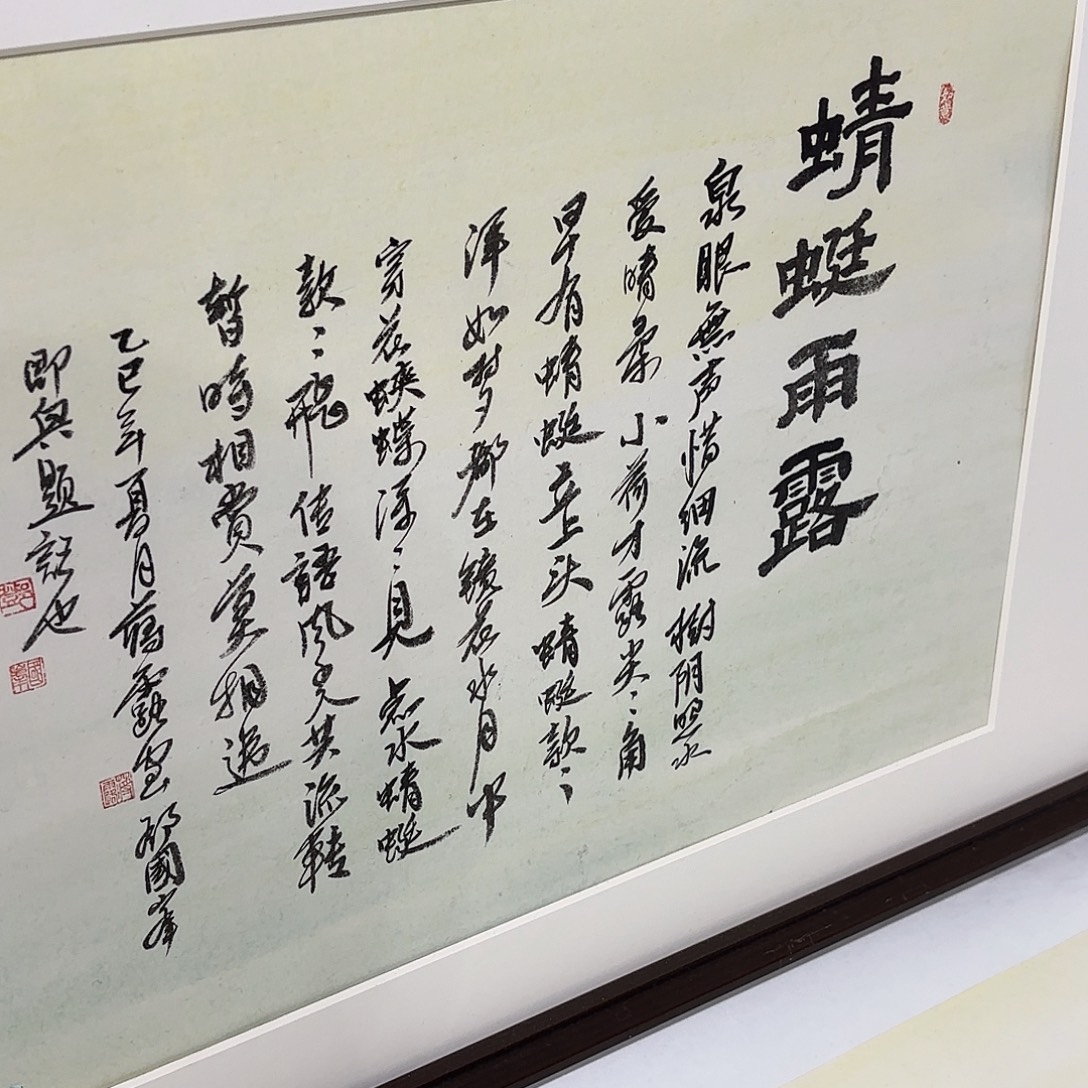 蜻蜓雨露
泉眼無声惜细流 樹阴照水
爱晴柔 小荷才露尖〻角
早有蜻蜓立上头 蜻蜓款〻
渾如梦 都在鏡花水月中
穿花蛱蝶深〻見 点水蜻蜓
款〻飛 传語風光共流轉
暫時相賞莫相違
乙巳年夏月 露堂 邢國峯
即興題記也